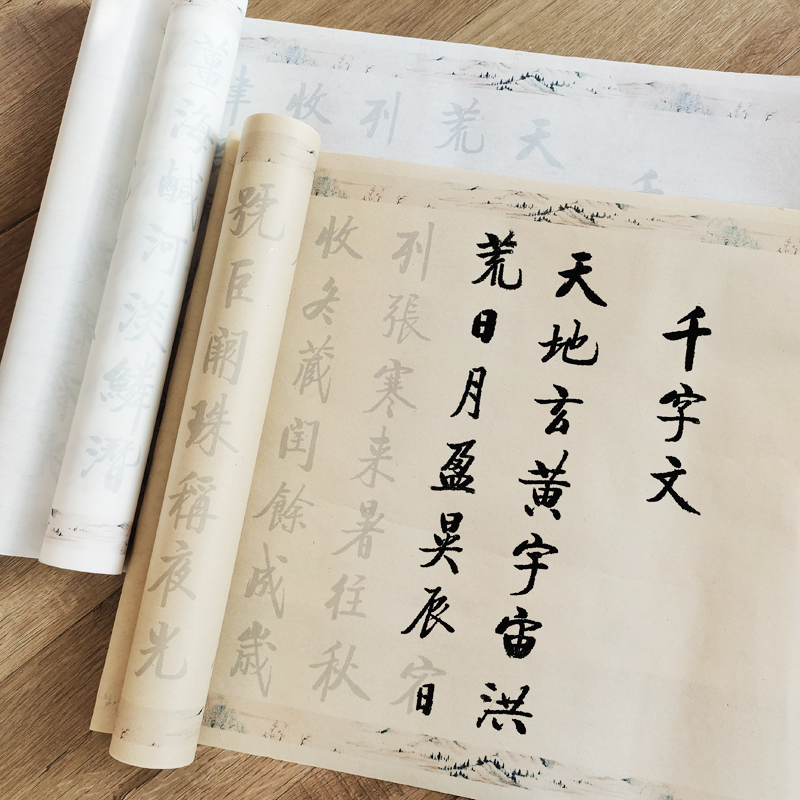 千字文
天地玄黄宇宙洪
荒日月盈昃辰宿
列張寒来暑往秋
收冬藏閏餘成歲
號巨闕珠稱夜光
千
天
荒
列
收
薑海鹹河淡鱗潛